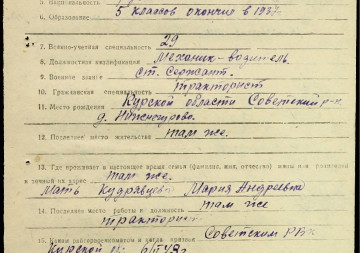 6. Образование 5 классов окончил в 1937
7. Военно-учетная специальность 29
8. Должностная квалификация Механик-водитель.
9. Воинское звание ст. Сержант.
10. Гражданская специальность тракторист
11. Место рождения Курской области Советский р-н
д.
12. Постоянное место жительства там же.
13. Где проживает в настоящее время семья (фамилия, имя, отчество) жены или родителей
и точный их адрес там же.
Мать Кудрявцева Мария Андреевна
14. Последнее место работы и должность там же
тракторист
15. Каким райвоенкоматом и когда призван Советским РВК
Курской